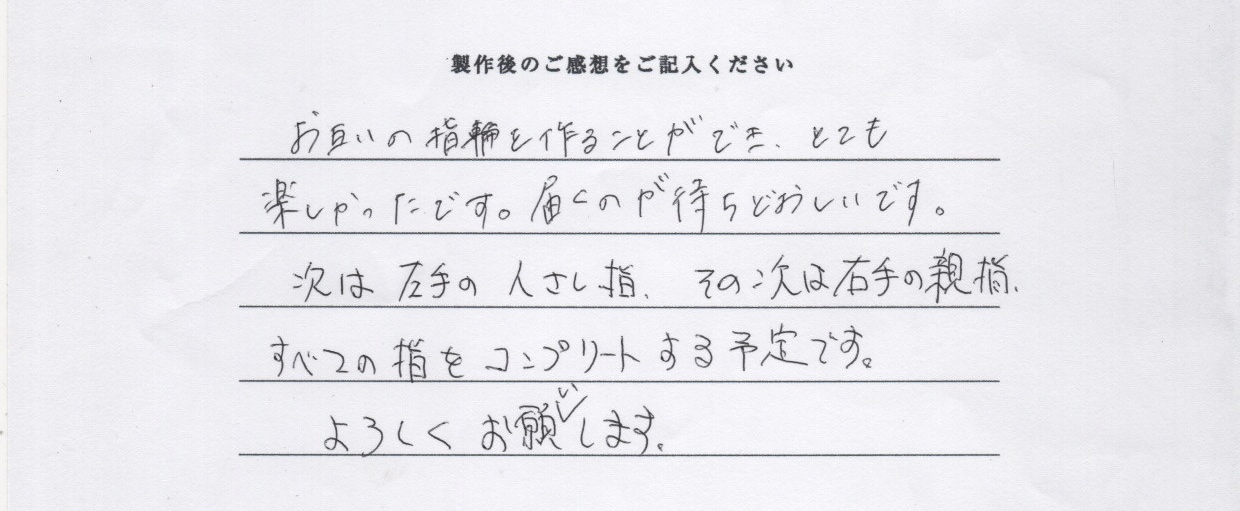 製作後のご感想をご記入ください
お互いの指輪を作ることができ、とても
楽しかったです。届くのが待ちどおしいです。
次は左手の人さし指、その次は右手の親指、
すべての指をコンプリートする予定です。
よろしくお願いします。